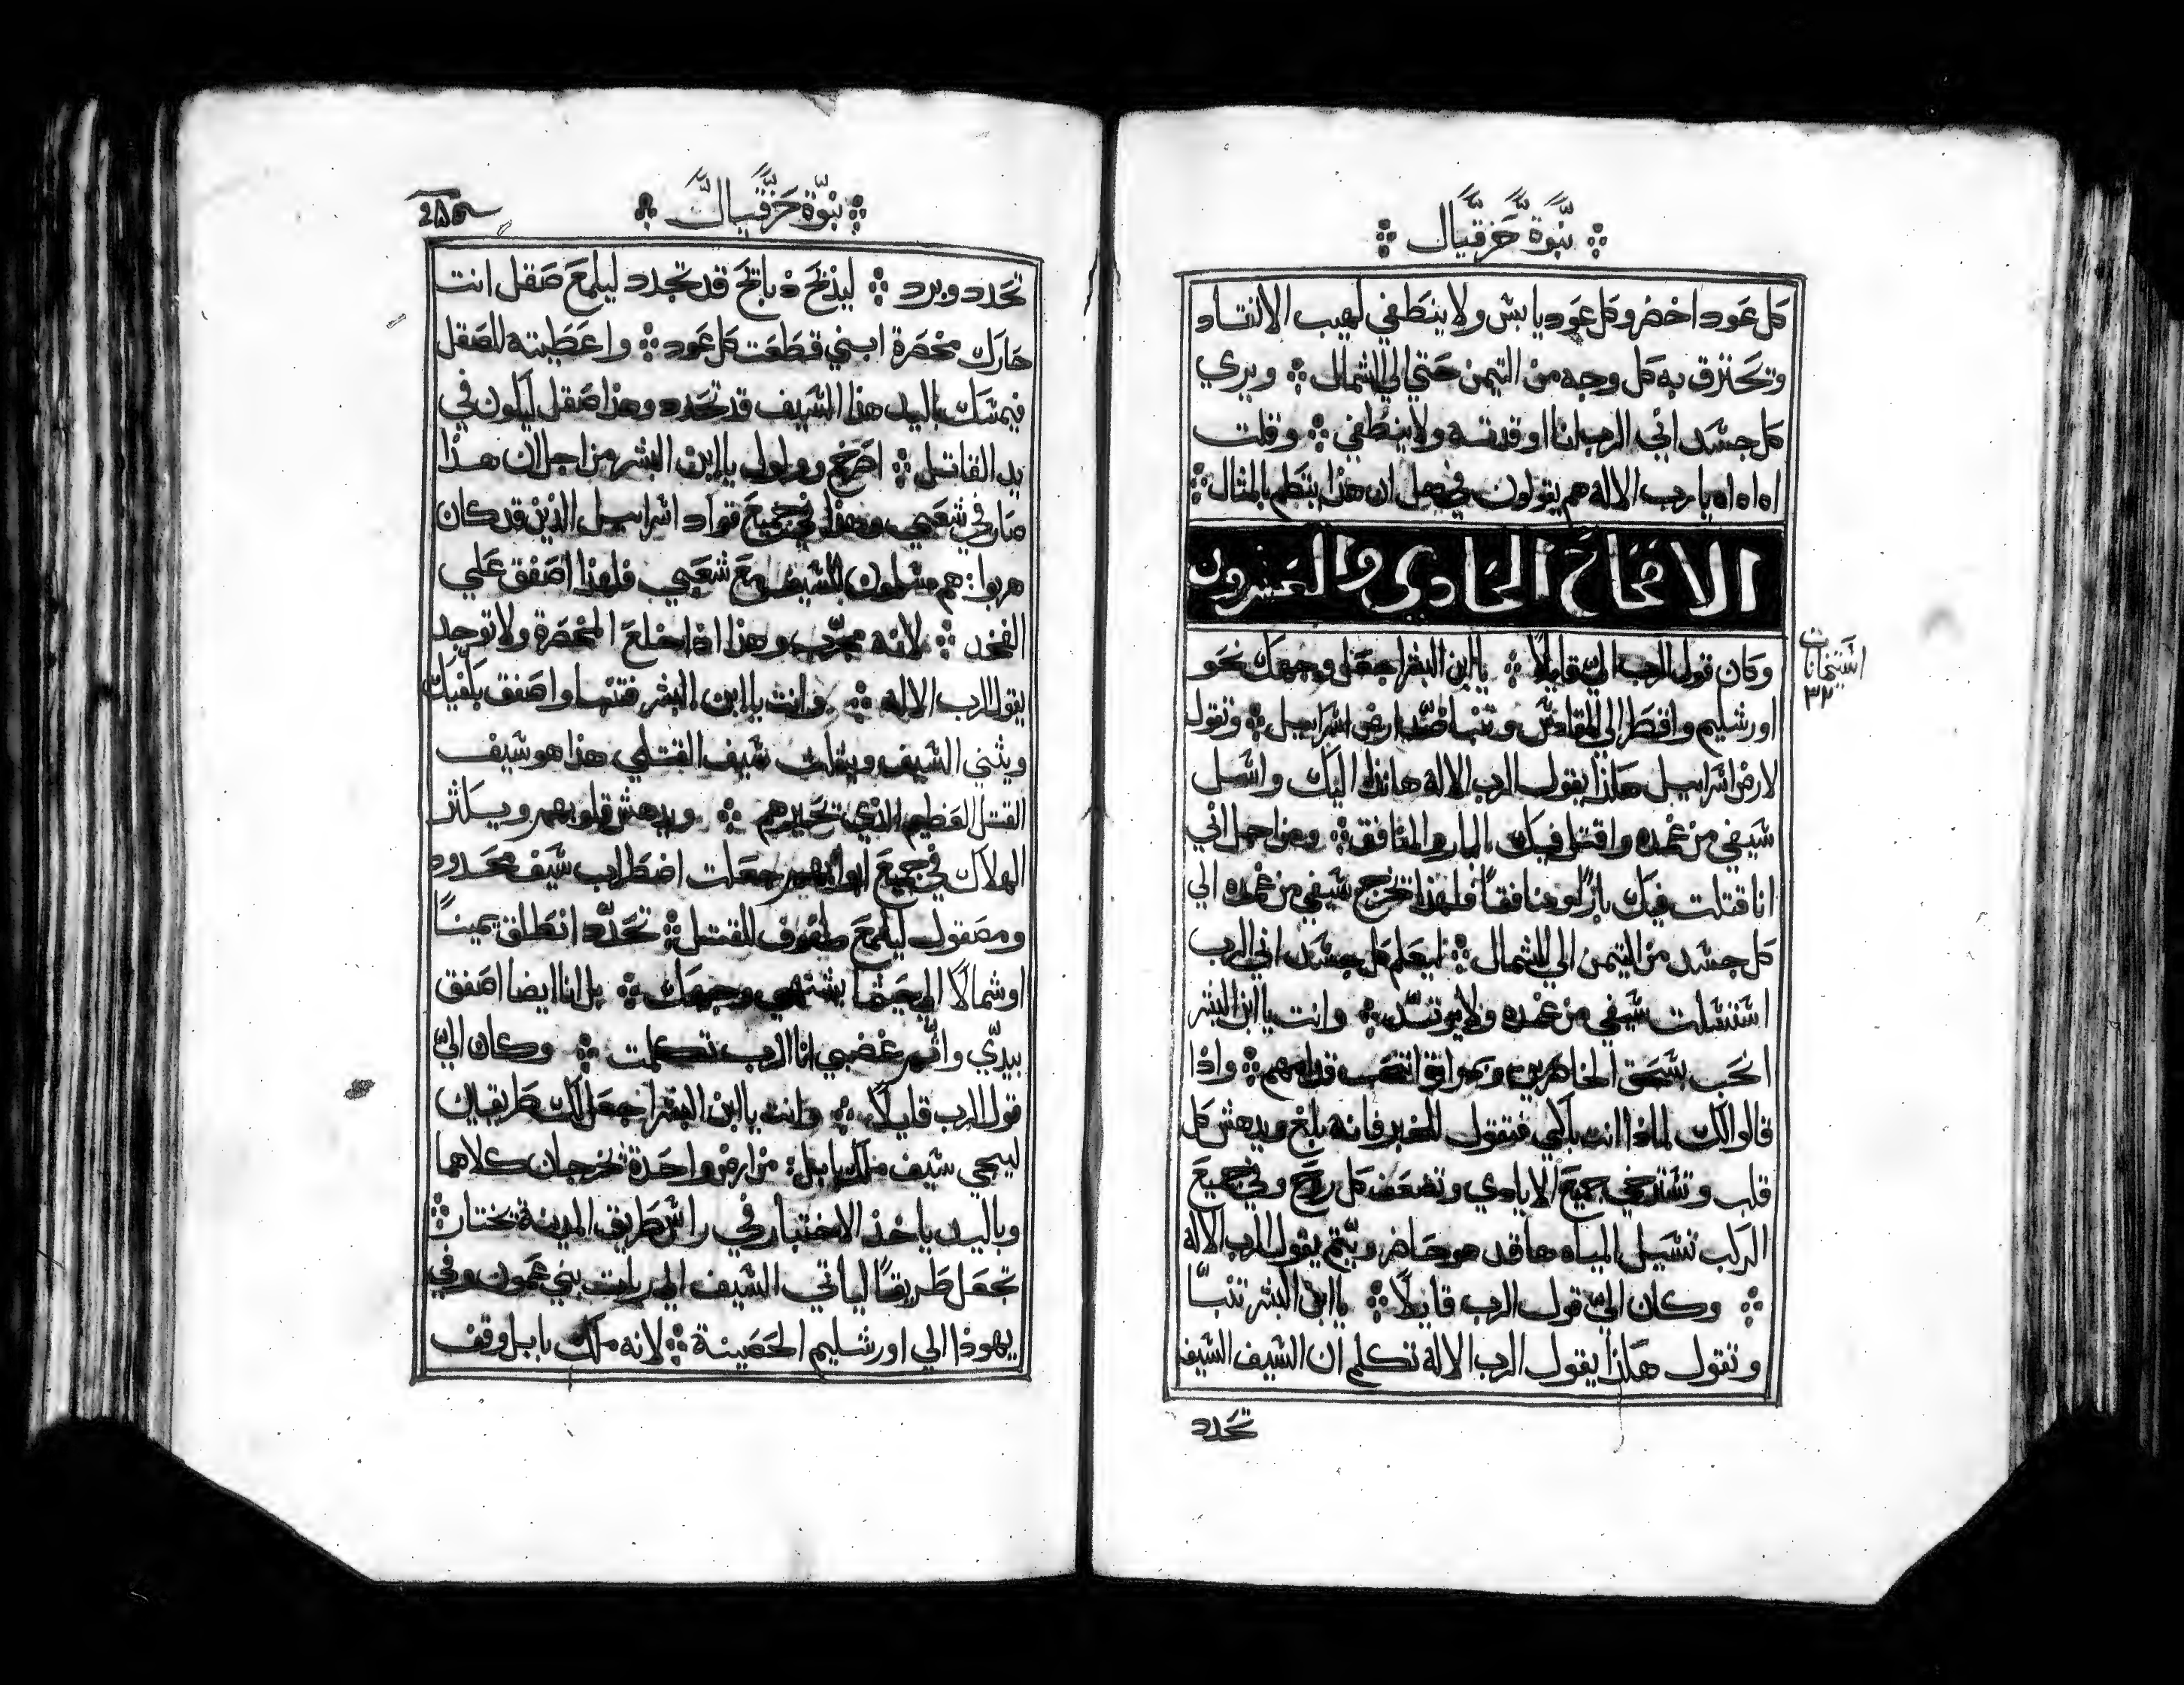 نبوة حزقيال
كل عود اخضر وكل عود يابس ولا ينطفي لهيب الاتقاد
وتحترق به كل وجه من التيمن حتي الي الشمال ويري
كل جسد اني الرب انا اوقدته ولا ينطفي وقلت
اه اه اه يا رب الاله هم يقولون في هل ان هذا يتكلم بالمثال
الاصحاح الحادي والعشرون
وكان قول الرب الي قايلًا يا ابن البشر اجعل وجهك نحو
اورشليم واقطر الي المقادس وتنبا ضد ارض اسراييل وتقول
لارض اسراييل هكذا يقول الرب الاله هانذا اليك واسل
سيفي من غمده واقتل فيك البار والمنافق ومن اجل اني
انا قتلت فيك بارًا ومنافقًا فلهذا تخرج سيفي من غمده الي
كل جسد من التيمن الي الشمال ليعلم كل جسد اني الرب
استسلت سيفي من غمده ولا يرتد وانت يا ابن البشر
انحب بسحق الخاصرين وبمراير انتحب قدامهم واذا
قالوا لك لماذا انت باكي فتقول للخبر فانه بلغ ويدهش كل
قلب وتسترخي جميع الايادي وتضعف كل روح وفي جميع
الركب تسيل المياه ها قد هو حاضر ويتم يقول الرب الاله
وكان الي قول الرب قايلًا يا ابن البشر تنبا
وتقول هكذا يقول الرب الاله تكلم ان السيف السيف
تحدد
استيخانات
٣٢
نبوة حزقيال
تحدد وبرد ليذبح ذبايح قد تحدد ليلمع صقل انت
حارك مخصرة ابني قطعت كل عود واعطيته للصقل
فيمسك باليد هذا السيف قد تحدد وهذا صقل ليكون في
يد القاتل اصرخ وولول يا ابن البشر من اجل ان هذا
صار في شعبي وهذا في جميع قواد اسراييل الذين قد كان
هربوا هم مسلمون للسيف مع شعبي فلهذا اصفق علي
الفخد لانه مجرب وهذا اذا خلع المخصرة ولا توجد
يقول الرب الاله وانت يا ابن البشر فتنبا واصفق بكفيك
ويثني السيف ويثلث سيف القتلي هذا هو سيف
القتل العظيم الذي تحيرهم ويدهش قلوبهم ويكثر
الهلاك في جميع ابوابهم جعلت اضطراب سيف محدود
ومصقول ليلمع ملفوف للقتل تحدد انطلق يمينًا
او شمالًا الي حيثما يشتهي وجهك بل انا ايضا اصفق
بيدي واتمم غضبي انا الرب تكلمت وكان الي
قول الرب قايلًا وانت يا ابن البشر اجعل لك طريقين
ليجي سيف ملك بابل من ارض واحدة تخرجان كلاهما
وباليد ياخذ الاختبار في راس طريق المدينة تختار
تجعل طريقًا لياتي السيف الي ربات بني عمون وفي
يهوذا الي اورشليم الحصينة لانه ملك بابل وقف